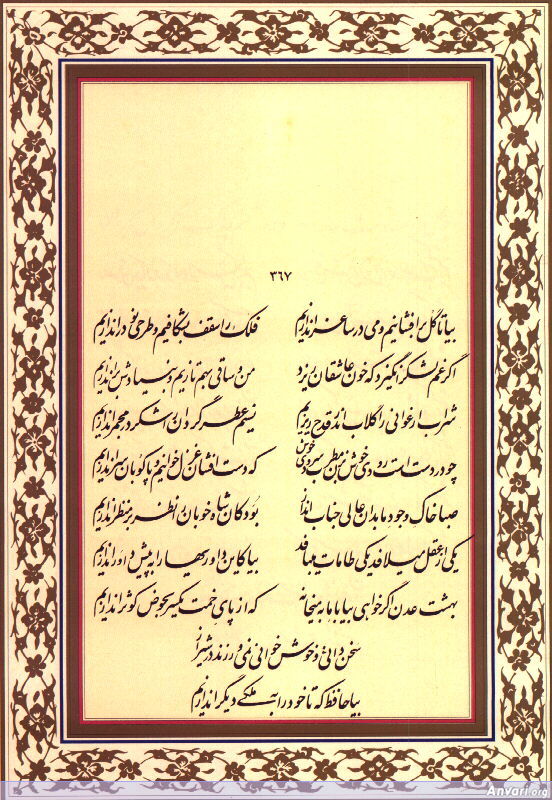 ۳۶۷
بیا تا گل برافشانیم و می در ساغر اندازیم فلک را سقف بشکافیم و طرحی نو در اندازیم
اگر غم لشکر انگیزد که خون عاشقان ریزد من و ساقی بهم تازیم و بنیادش براندازیم
شراب ارغوانی را گلاب اندر قدح ریزیم نسیم عطر گردان را شکر در مجمر اندازیم
چو در دست است رودی خوش بزن مطرب سرودی خوش که دست افشان غزل خوانیم و پاکوبان سر اندازیم
صبا خاک وجود ما بدان عالی جناب انداز بود کان شاه خوبان را نظر بر منظر اندازیم
یکی از عقل میلافد یکی طامات میبافد بیا کاین داوریها را به پیش داور اندازیم
بهشت عدن اگر خواهی بیا با ما به میخانه که از پای خمت یکسر بحوض کوثر اندازیم
سخن دانی و خوش خوانی نمی ورزند در شیراز
بیا حافظ که تا خود را به ملکی دیگر اندازیم
Anvari.org